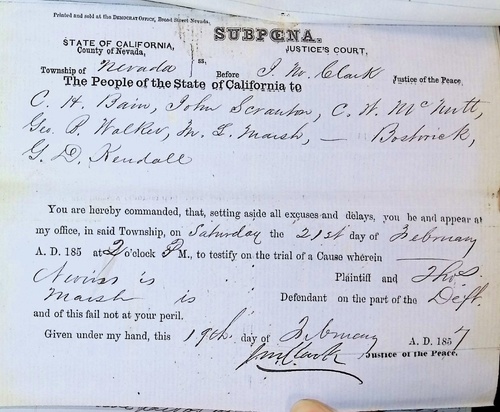 Printed and sold at the DEMOCRAT OFFICE, Broad Street Nevada,
SUBPŒNA.
STATE OF CALIFORNIA, JUSTICE'S COURT,
County of Nevada, ss,
Township of Nevada Before J. W. Clark Justice of the Peace
The People of the State of California to
C. H. Bain, John Scranton, C. W. McNutt,
Geo. P. Walker, M. L. Marsh, — Bostwick,
G. D. Kendall
You are hereby commanded, that, setting aside all excuses and delays, you be and appear at
my office, in said Township, on Saturday the 21st day of February
A. D. 185 at 2 o'clock P M., to testify on the trial of a Cause wherein
is Plaintiff and Thos.
Marsh is Defendant on the part of the Deft.
and of this fail not at your peril.
Given under my hand, this 19th day of February A. D. 1857
J. W. Clark Justice of the Peace.